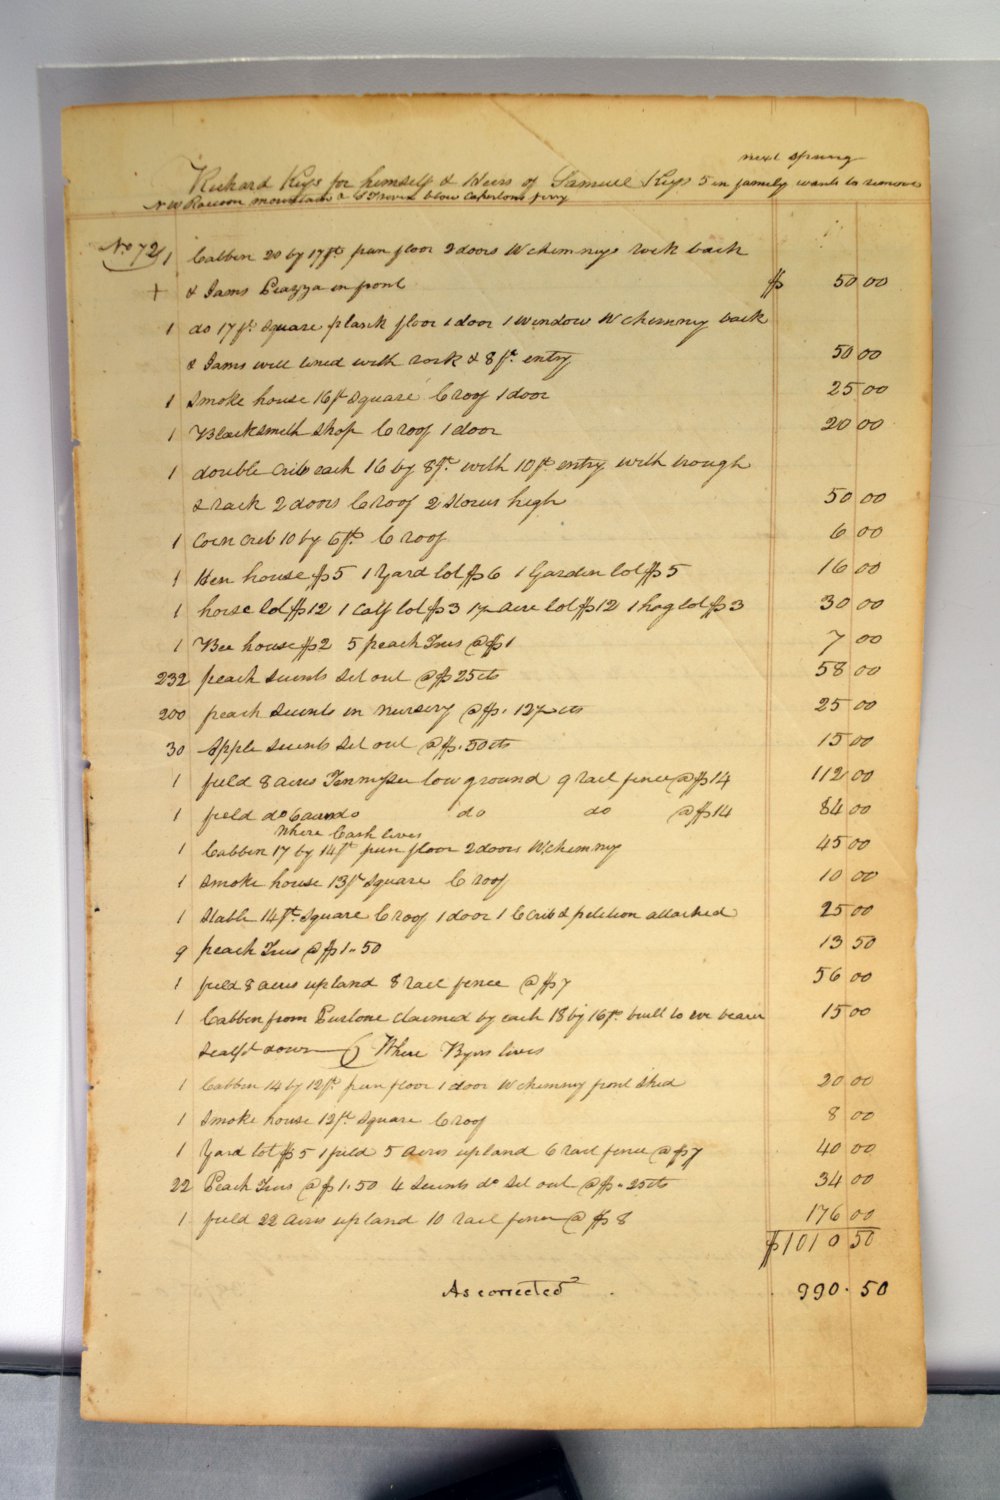 next spring
Richard Keys for himself & Heirs of Samuel Keys 5 in family wants to remove
N W Racoon mountain & T River blow Capertons ferry
No 72 1 Cabbin 20 by 17ft pun floor 2 doors W chimney rock back
+ & Jams Piazza in front $ 50 00
1 do 17ft square plank floor 1 door 1 window W chimney back
& Jams well lined with rock & 8ft entry 50 00
1 Smoke house 16ft square C roof 1 door 25 00
1 Blacksmith Shop C roof 1 door 20 00
1 double crib each 16 by 8ft with 10ft entry with trough
& rack 2 doors C roof 2 stories high 50 00
1 Corn crib 10 by 6ft C roof 6 00
1 Hen house $5 1 Yard lot $6 1 Garden lot $5 16 00
1 horse lot $12 1 Calf lot $3 1½ acre lot $12 1 hog lot $3 30 00
1 Bee house $2 5 peach Trees @ $1 7 00
232 peach scients set out @ $25cts 58 00
200 peach scients in nursery @ $. 12½ cts 25 00
30 Apple scients set out @ $.50cts 15 00
1 field 8 acres Tennessee low ground 9 rail fence @ $14 112 00
1 field do 6 acres do do do @ $14 84 00
Where Cash lives
1 Cabbin 17 by 14ft pun floor 2 doors W.chimney 45 00
1 Smoke house 13ft square C roof 10 00
1 Stable 14ft square C roof 1 door 1 C crib & petition attached 25 00
9 peach Trees @ $1.50 13 50
1 field 8 acres upland 8 rail fence @ $7 56 00
1 Cabbin from claimed by each 18 by 16ft built to eve bearer 15 00
scalp'd down Where Byers lives
1 Cabbin 14 by 12ft pun floor 1 door W chimney front shed 20 00
1 Smoke house 12ft square C roof 8 00
1 Yard lot $5 1 field 5 acres upland 6 rail fence @ $7 40 00
22 Peach Trees @ $1.50 4 scients do set out @ $.25cts 34 00
1 field 22 acres upland 10 rail fence @ $8 176 00
$1010 50
As corrected 990.50